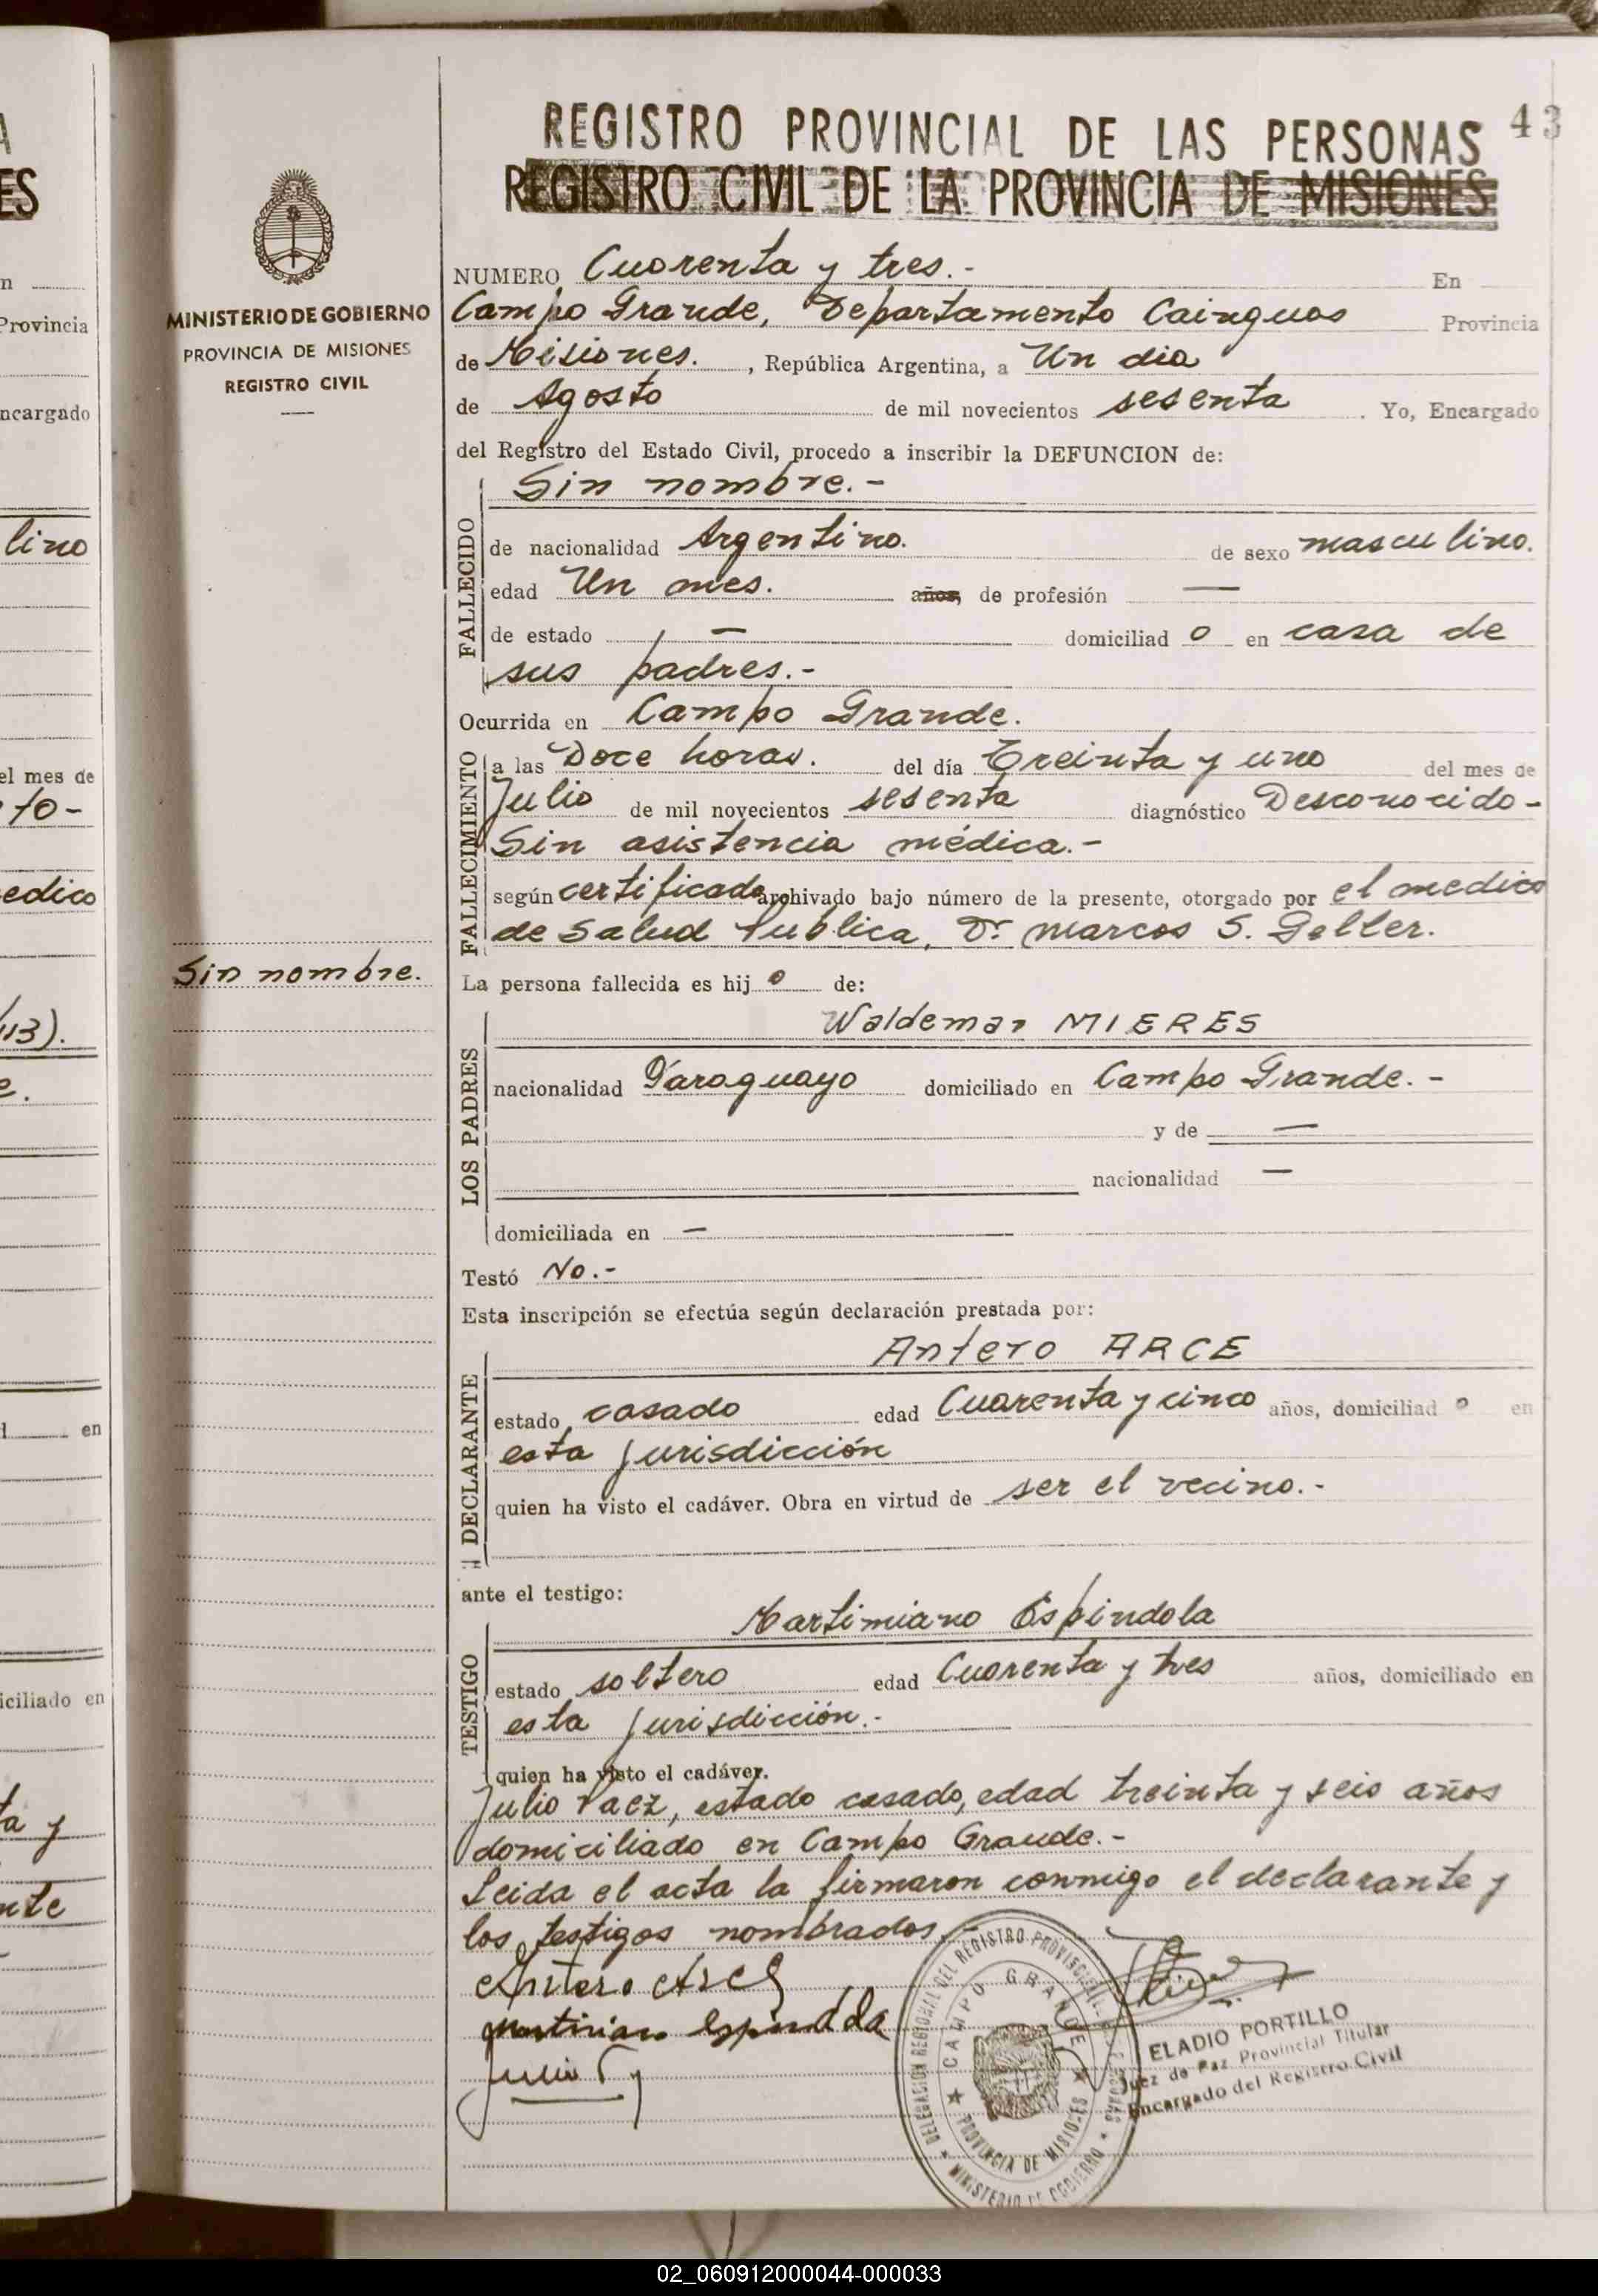 43
REGISTRO PROVINCIAL DE LAS PERSONAS
REGISTRO CIVIL DE LA PROVINCIA DE MISIONES
MINISTERIO DE GOBIERNO
PROVINCIA DE MISIONES
REGISTRO CIVIL
NUMERO Cuarenta y tres.- En
Campo Grande, Departamento Cainguas Provincia
de Misiones. , República Argentina, a Un dia
de Agosto de mil novecientos sesenta . Yo, Encargado
del Registro del Estado Civil, procedo a inscribir la DEFUNCION de:
FALLECIDO
Sin nombre.-
de nacionalidad Argentino. de sexo masculino.
edad Un mes. años, de profesión —
de estado — domiciliad o en casa de
sus padres.-
Ocurrida en Campo Grande.
FALLECIMIENTO
a las Doce horas. del día Treinta y uno del mes de
Julio de mil novecientos sesenta diagnóstico Desconocido-
Sin asistencia médica.-
según certificado archivado bajo número de la presente, otorgado por el medico
de Salud Publica, Dr. Marcos S. Geller.
Sin nombre.
La persona fallecida es hij o de:
LOS PADRES
Waldemar MIERES
nacionalidad Paraguayo domiciliado en Campo Grande.-
y de —
nacionalidad —
domiciliada en —
Testó No.-
Esta inscripción se efectúa según declaración prestada por:
DECLARANTE
Antero ARCE
estado casado edad Cuarenta y cinco años, domiciliad o en
esta jurisdicción
quien ha visto el cadáver. Obra en virtud de ser el vecino.-
ante el testigo:
TESTIGO
Martimiano Espindola
estado soltero edad Cuarenta y tres años, domiciliado en
esta jurisdicción.-
quien ha visto el cadáver.
Julio Paez, estado casado, edad treinta y seis años
domiciliado en Campo Grande.-
Leida el acta la firmaron conmigo el declarante y
los testigos nombrados.-
Antero Arce
espindola
Julio
CAMPO GRANDE
PROVINCIA DE MISIONES
MINISTERIO DE GOBIERNO
ELADIO PORTILLO
Juez de Paz Provincial Titular
Encargado del Registro Civil
lino
Provincia
ncargado
el mes de
edico
en
iciliado en
02_060912000044-000033